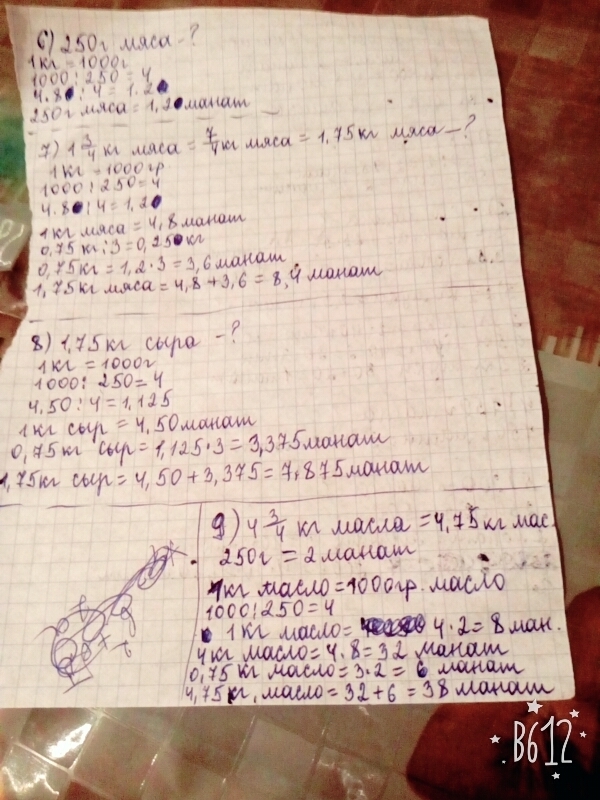 6) 250г мяса -?
1кг = 1000г
1000 : 250 = 4
4.80 : 4 = 1.20
250г мяса = 1,20манат
7) 1 3/4 кг мяса = 7/4 кг мяса = 1,75кг мяса -?
1кг = 1000гр.
1000 : 250 = 4
4.80 : 4 = 1,20
1кг мяса = 4,8манат
0,75кг : 3 = 0,250кг
0,75кг = 1,2·3 = 3,6манат
1,75кг мяса = 4,8 + 3,6 = 8,4манат
8) 1,75кг сыра -?
1кг = 1000г
1000 : 250 = 4
4,50 : 4 = 1,125
1кг сыр = 4,50манат
0,75кг сыр = 1,125·3 = 3,375манат
1,75кг сыр = 4,50 + 3,375 = 7,875манат
9) 4 3/4 кг масла = 4,75кг мас.
250г = 2манат
1кг масло = 1000гр. масло
1000 : 250 = 4
1кг масло = 4·2 = 8ман.
4кг масло = 4·8 = 32 манат
0,75кг масло = 3·2 = 6 манат
4,75кг. масло = 32 + 6 = 38 манат
B612